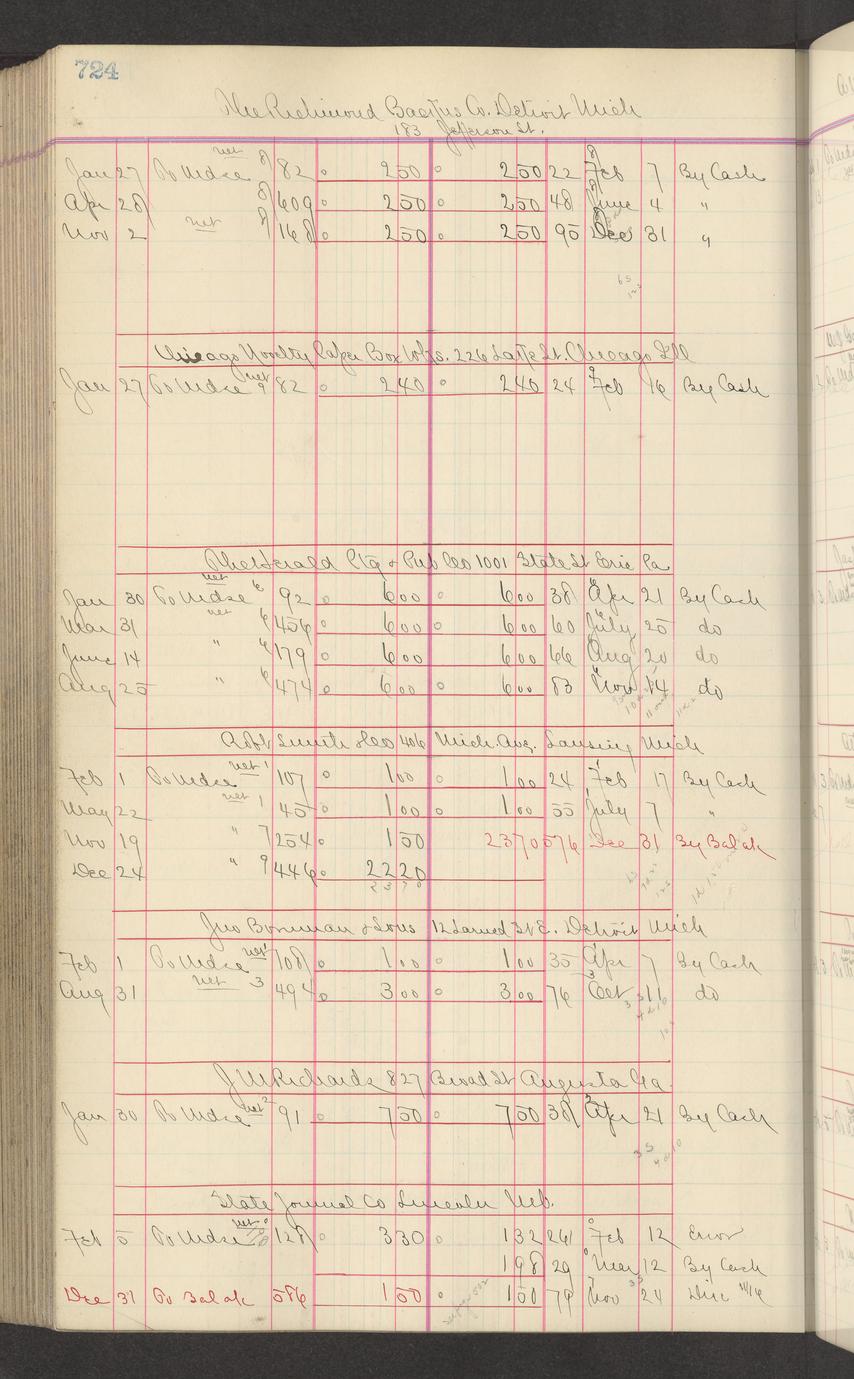 724
The Richmond Backus Co. Detroit Mich
183 Jefferson St.
Jan 27 To Mdse net 8 82 250 250 22 8 Feb 7 By Cash
Apr 28 8 609 250 250 48 8 June 4 "
Nov 2 net 8 168 250 250 95 Dec 31 "
Chicago Novelty Paper Box Wks. 226 St. Chicago Ill
Jan 27 To Mdse net 9 82 240 240 24 9 Feb 16 By Cash
The Herald Ptg & Pub Co 1001 State St Erie Pa
Jan 30 To Mdse net 6 92 600 600 38 6 Apr 21 By Cash
Mar 31 net 6 456 600 600 60 6 July 25 do
June 14 " 6 179 600 600 66 6 Aug 20 do
Aug 25 " 6 474 600 600 83 6 Nov 14 do
Robt Smith & Co 406 Mich. Ave. Lansing Mich
Feb 1 To Mdse net 1 107 100 100 24 1 Feb 17 By Cash
May 22 net 1 45 100 100 55 July 7 "
Nov 19 " 7 254 150 2370 576 Dec 31 By Bal ak
Dec 24 " 9 446 2220
2370
Jno Bornman & Sons 12 Larned St E. Detroit Mich
Feb 1 To Mdse net 1 108 100 100 35 1 Apr 7 By Cash
Aug 31 net 3 494 300 300 76 3 Oct 11 do
J M Richards 827 Broad St Augusta Ga.
Jan 30 To Mdse net 2 91 750 750 38 2 Apr 21 By Cash
State Journal Co Lincoln Neb.
Feb 5 To Mdse net 128 330 132 261 0 Feb 12 Error
198 29 0 Mar 12 By Cash
Dec 31 To Bal ak 586 150 150 79 7 Nov 24 Disc